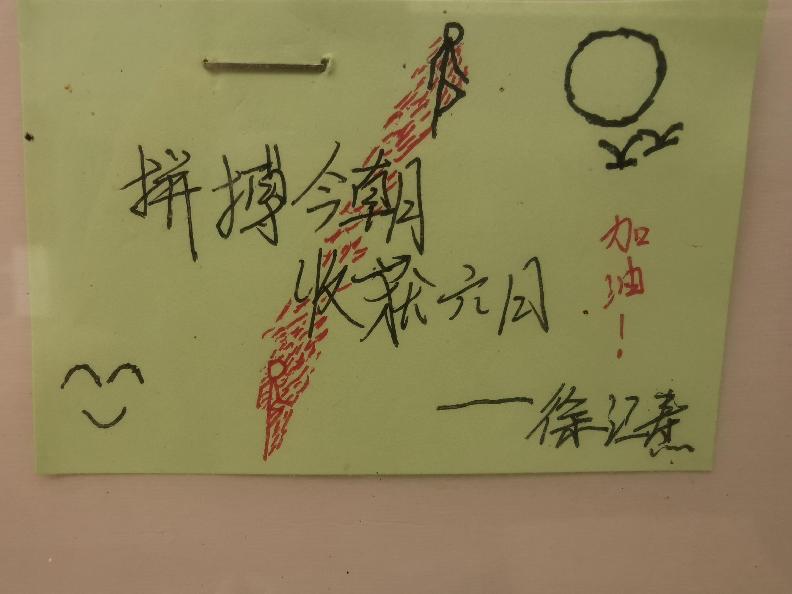 拼搏今朝
收获六月
天天
加油！
——徐江焘